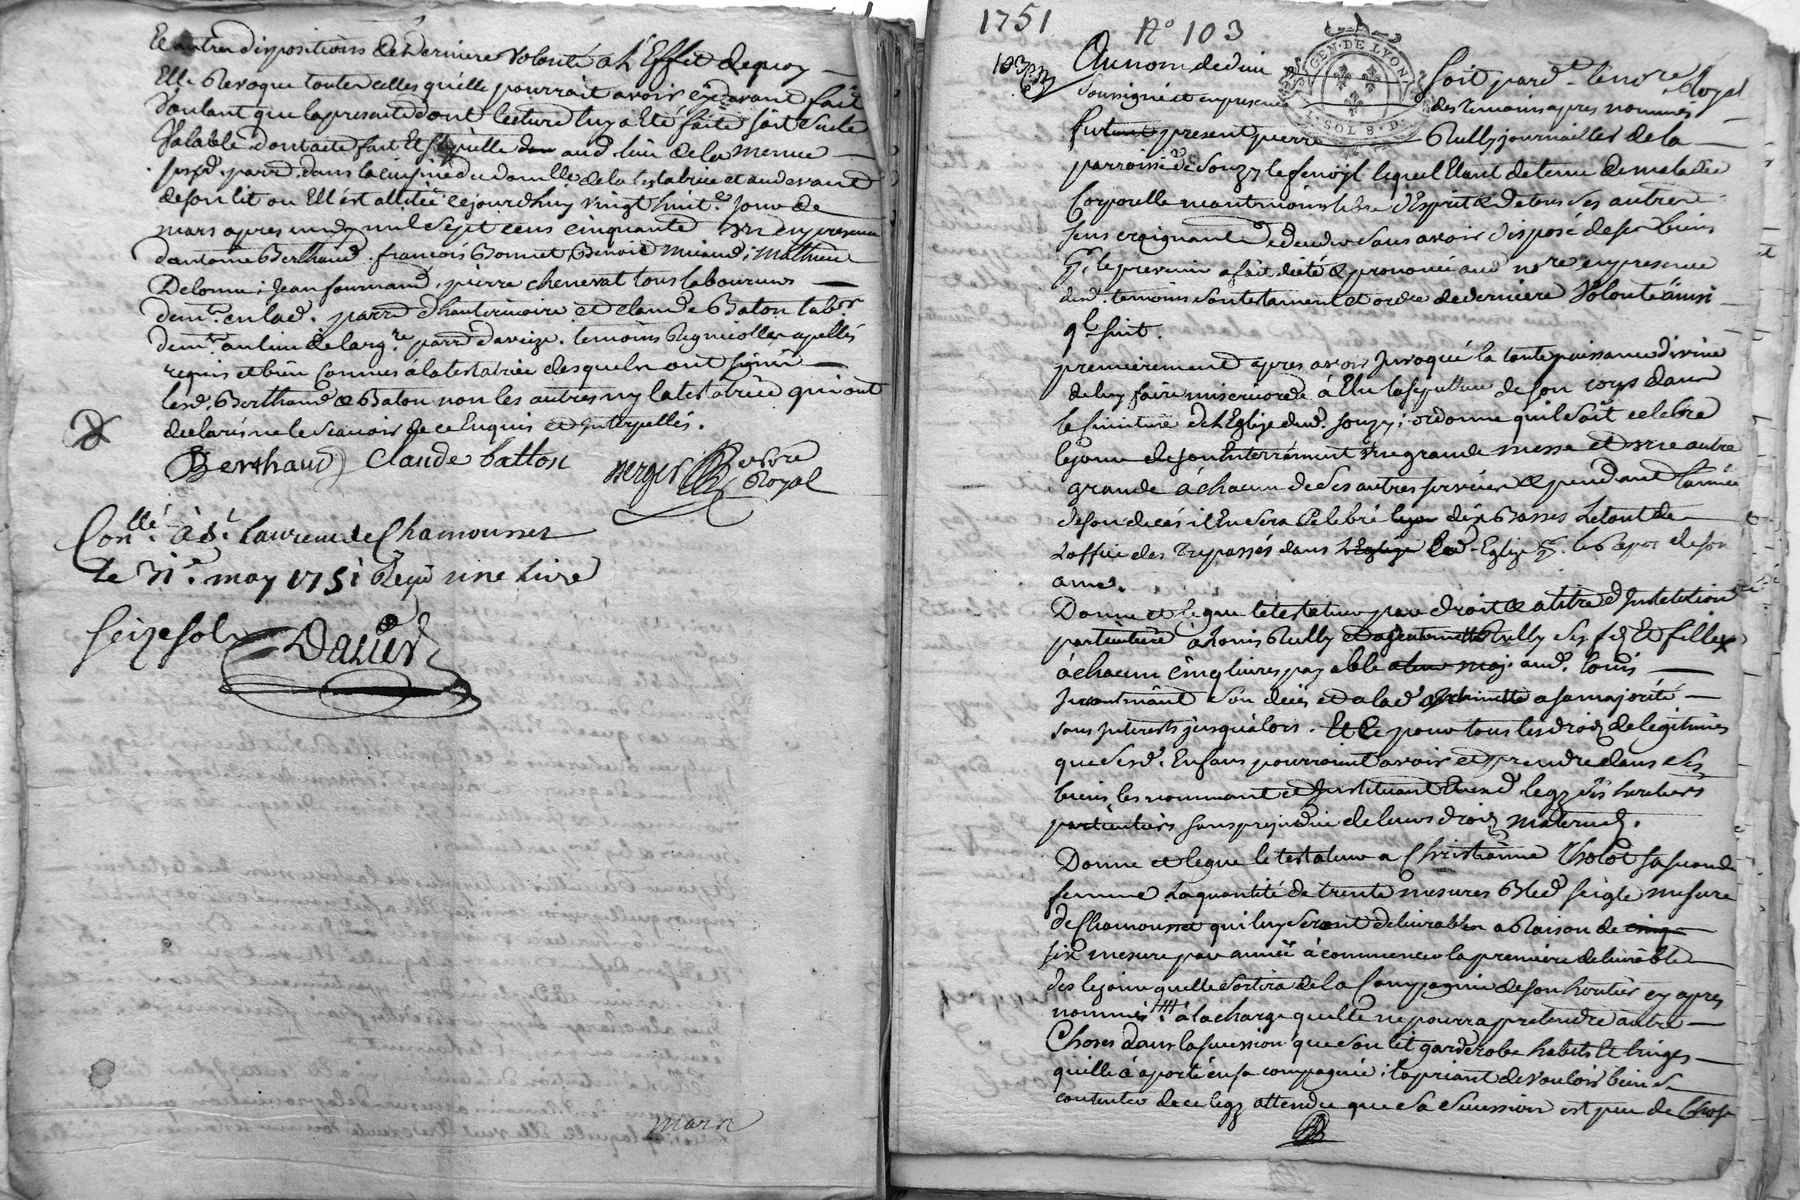 Et autres dispositions de derniere volonté a L'Effet de quoy
Elle Revoque toutes celles qu'elle pourroit avoir cy devant fait
voulant que la presente dont lecture luy a Eté faite soit seule
Valable dont acte fait Et au lieu de la
parr. dans la cuisine du domicille de la testatrice et au devant
de son lit ou Ell'est allitée cejourd'huy vingt huit.e jour de
mars apres midy mil sept cens cinquante un en presence
d'antoine Berthaud. françois Bonnet, Benoit ; Mathieu
Delorme ; Jean fournand, pierre chenevat tous laboureurs
dem.t en lad. parr. d'hauterivoire et claude Baton lab.r
dem.t au lieu de parr. d'aveize. temoins Regnicoles apellés
requis et bien connus a la testatrice desquels ont signés
lesd. Berthaud & Baton non les autres ny la testatrice qui ont
declarés ne le scavoir de ce Enquis et interpellés.
Berthaud Claude batton verger no.re Royal
Con.llé à S.t Laurent de Chamousset
le 31.e may 1751 Reçu une livre
seize sols Dalier
mars
1751 N° 103
103
Au nom de dieu soit par d. le no.re Royal
soussigné et en presence des temoins apres nommés
fut present pierre Rully journallier de la
parroisse de Souzy le fenoyl lequel Etant detenu de maladie
Corporelle neantmoins libre d'Esprit & de tous ses autres
sens craignant de deceder sans avoir disposé de ses biens
p.r le prevenir a fait dicté & prononcé aud. no.re en presence
desd. temoins son testament et ordre de derniere Volonté ainsi
q.l suit.
premierement apres avoir Invoqué la toute puissance divine
de luy faire misericorde à Elu la sepulture de son corps dans
le simitiere de L'Eglise dud. Souzy ; ordonne qu'il soit celebré
le jour de son Enterrement une grande messe et une autre
grande à chacun de ses autres services & pendant l'année
de son decés il En sera Celebré dix Basses Letout de
L'office des Trepassés dans L'Eglise Lad. Eglise p.r le Repos de son
ame.
Donne et Legue le testateur par droit & a titre d'Institution
particuliere à Louis Rully et a antoinette Rully ses fils Et fille
à chacun cinq livres payable aud. Louis
Incontinant son decés et a lad. antoinette a sa majorité
sans Interests jusqu'alors. Et Ce pour tous les droits de legitimes
que sesd. Enfans pourroient avoir et prendre dans ses
biens les nommant et Instituant legz ses heritiers
particuliers sans prejudice de leurs droits maternels.
Donne et legue le testateur a Christianne Tholot sa seconde
femme la quantité de trente mesures Bled seigle mesure
de Chamousset qui luy seront delivrables a Raison de cinq
six mesure par année à commencer la premiere delivrable
des le jour quelle sortira de la Compagnie de son heritier cy apres
nommé ; à la charge quelle ne pourra pretendre autre
Choses dans la succession que son lit garderobe habits Et linges
quelle à aporté en sa compagnie ; la priant de vouloir bien se
contenter de ce legz attendu que Sa Succession est peu de Chose
GEN. DE LYON
SOL 8. D.